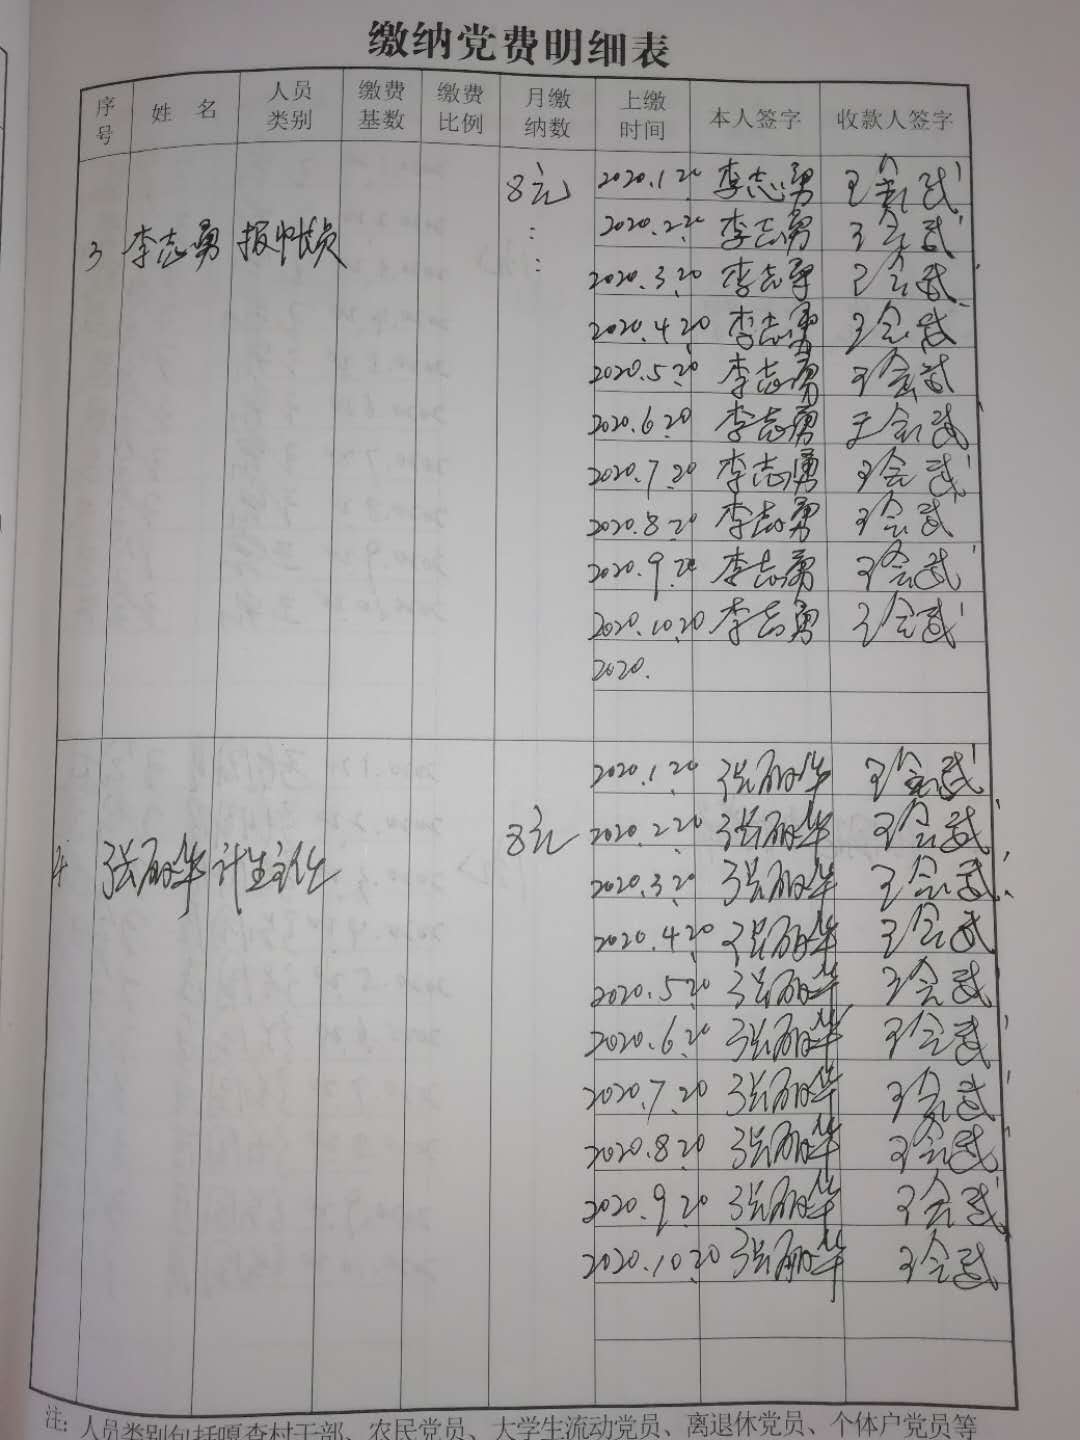 缴纳党费明细表
序号 姓名 人员类别 缴费基数 缴费比例 月缴纳数 上缴时间 本人签字 收款人签字
8元 2020.1.20 李志勇 王会武
2020.2.20 李志勇 王会武
3 李志勇 报帐员 2020.3.20 李志勇 王会武
2020.4.20 李志勇 王会武
2020.5.20 李志勇 王会武
2020.6.20 李志勇 王会武
2020.7.20 李志勇 王会武
2020.8.20 李志勇 王会武
2020.9.20 李志勇 王会武
2020.10.20 李志勇 王会武
2020.
2020.1.20 张丽华 王会武
8元 2020.2.20 张丽华 王会武
4 张丽华 计生主任 2020.3.20 张丽华 王会武
2020.4.20 张丽华 王会武
2020.5.20 张丽华 王会武
2020.6.20 张丽华 王会武
2020.7.20 张丽华 王会武
2020.8.20 张丽华 王会武
2020.9.20 张丽华 王会武
2020.10.20 张丽华 王会武
注：人员类别包括嘎查村干部、农民党员、大学生流动党员、离退休党员、个体户党员等